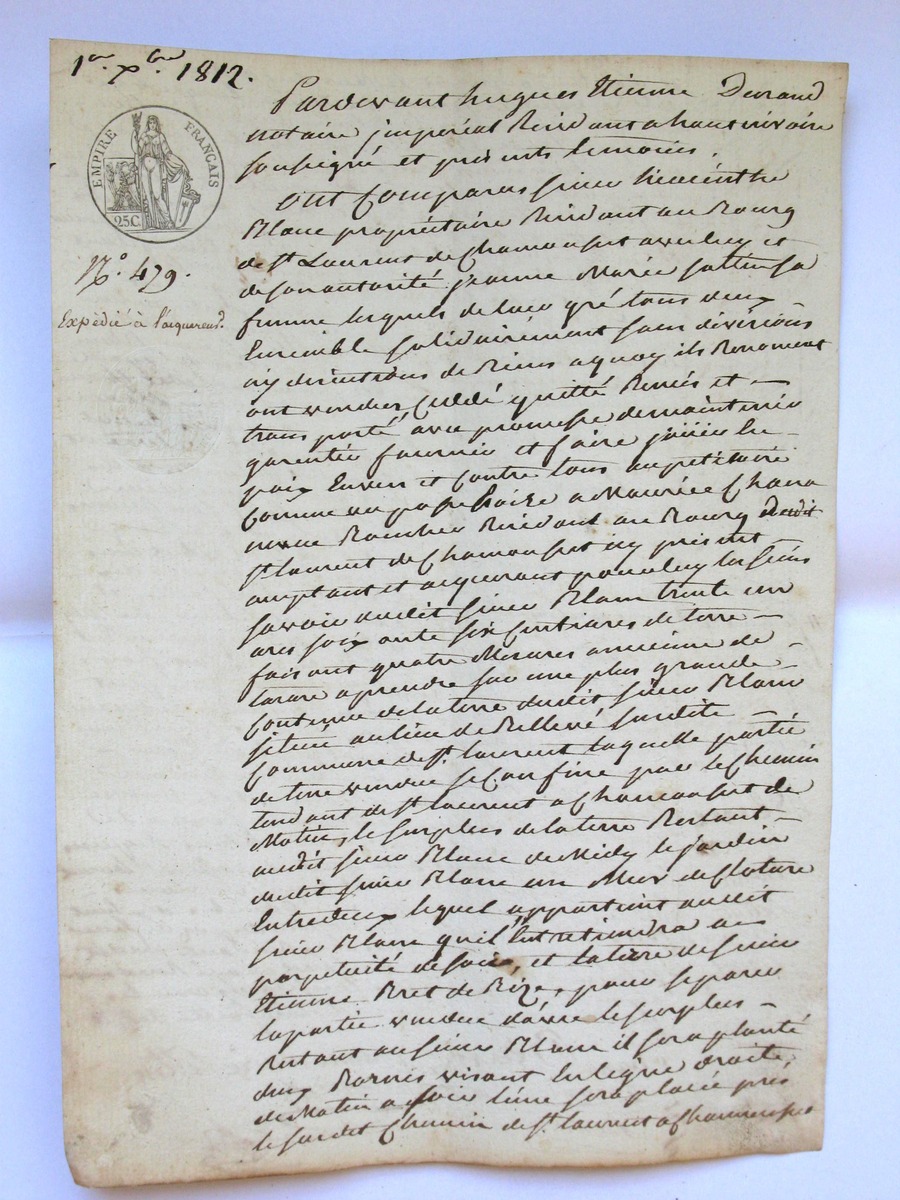 1er Xbre 1812.
EMPIRE FRANÇAIS
25C.
N.o 479.
Expèdié à l'aquereur.
Pardevant hugues Etienne Durand
notaire jmperial Residant a hautrivoire
soussigné et presents temoins.
ont Comparus sieur hiacinthe
Blanc propriétaire Residant au Bourg
de st Laurent de Chamousset avec luy et
de son autorité jeanne Marie sa
femme lesquels de leur gré tous deux
Ensemble solidairement sans divisions
ny discutions de Biens a quoy ils Renoncent
ont vendus, Ceddé quitté Remis et
transporté avec promesse de maintenir
garentir fournir et faire jouir En
paix Envers et Contre tous au petitoire
Comme au possessoire a Maurice Chana
Residant au Bourg dudit
st laurent de Chamousset icy present
acceptant et aquerant pour luy les siens
savoir audit sieur Blanc trente un
ares soixante six Centiares de terre
faisant quatre Mesures ancienne de
tarare a prendre sur une plus grande
Contenue de la terre dudit sieur Blanc
située au lieu de Bellevué susdite
Commune de st laurent laquelle partie
de terre vendue se Confine par le Chemin
tendant de st laurent a Chamousset de
Matin, le surplus de la terre Restant
audit sieur Blanc de Midy le jardin
dudit sieur Blanc un Mur de Cloture
Entredeux lequel appartient audit
sieur Blanc qu'il Entretiendra a
perpetuité de soir, et la terre de sieur
Etienne de Bize, pour separer
la partie vendue d'avec le surplus
Restant au sieur Blanc il sera planté
deux Bornes visant En ligne droite
de Matin a soir l'une sera placée prés
le susdit Chemin de st laurent a Chamousset